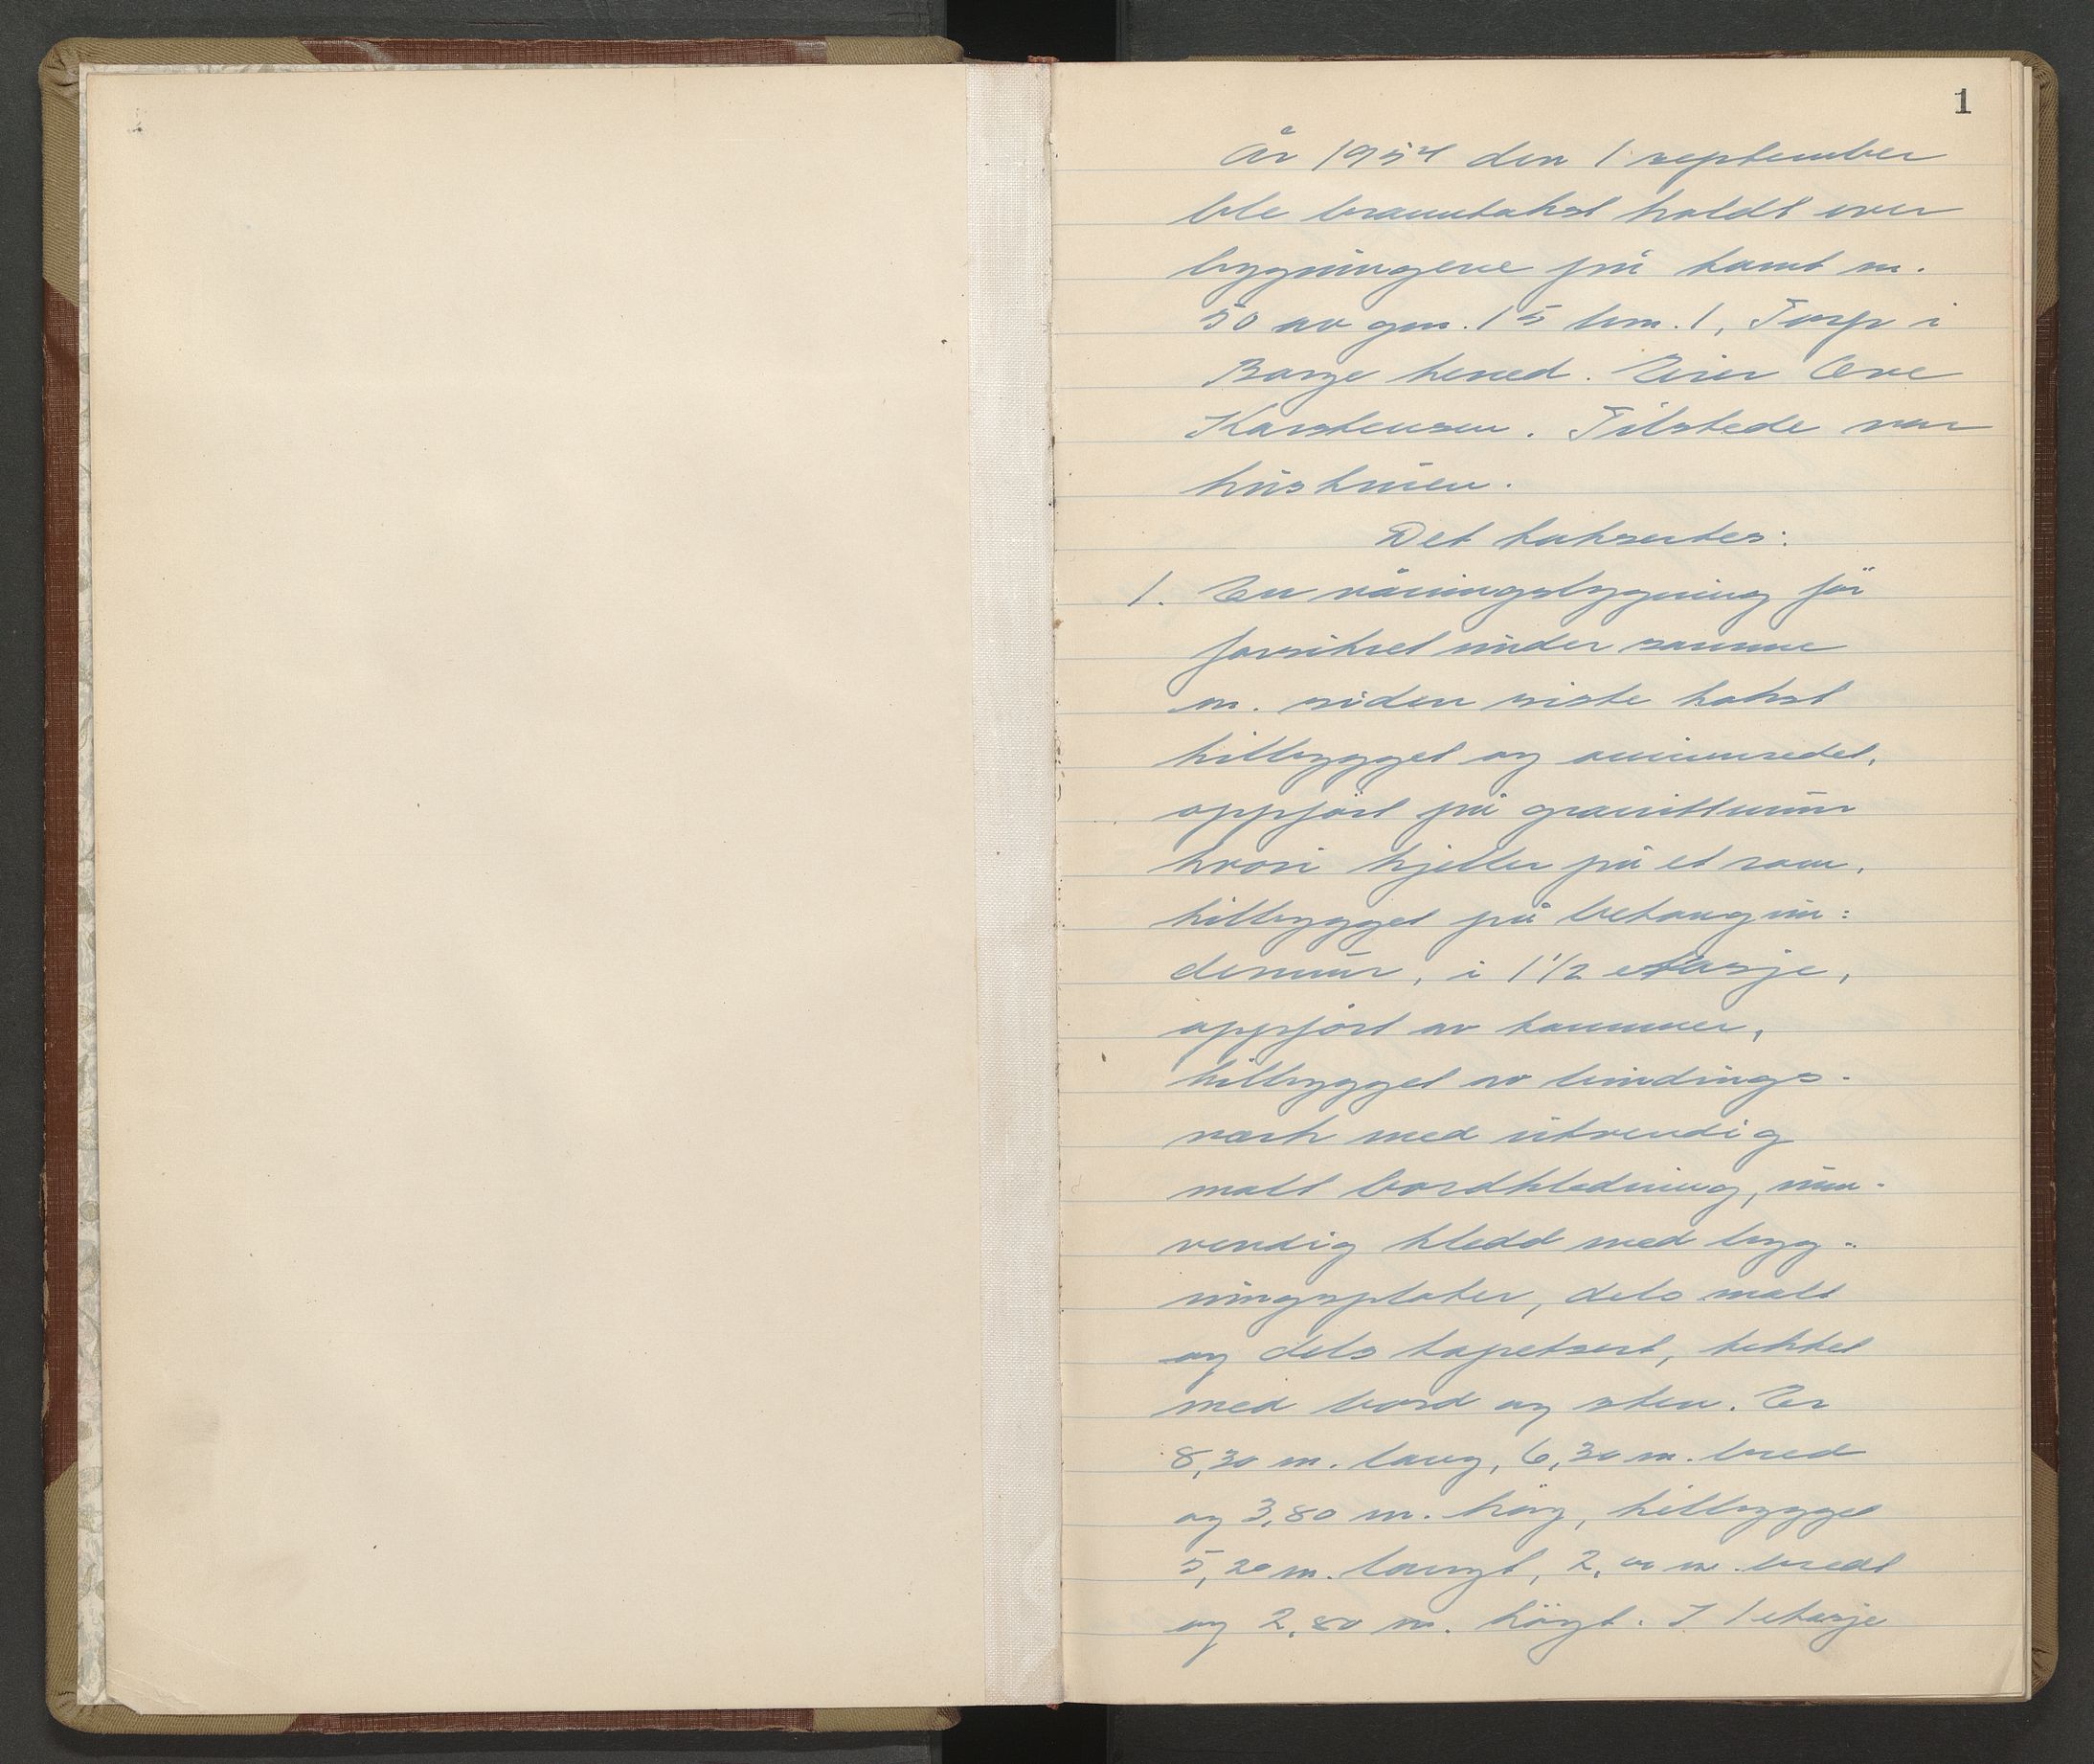 1
År 1954 den 1 september
ble branntakst holdt over
bygningene på tomt nr.
50 av gnr. 15 bnr. 1, Torp i
Borge herred. Eier Ove
Karstensen. Tilstede var
hustruen.
Det taksertes:
1. En våningsbygning før
forsikret under samme
nr. siden siste takst
tilbygget og ominnredet,
oppført på granittmur
hvori kjeller på et rom,
tilbygget på betongrun=
denmur, i 1 1/2 etasje,
oppført av tømmer,
tilbygget av bindings-
verk med utvendig
malt bordkledning, inn-
vendig kledd med byg=
ningsplater, dels malt
og dels tapetsert, tekket
med bord og sten. Er
8,30 m. lang, 6,30 m. bred
og 3,80 m. høy, tilbygget
5,20 m. langt, 2,00 m. bredt
og 2,80 m. høyt. I 1 etasje